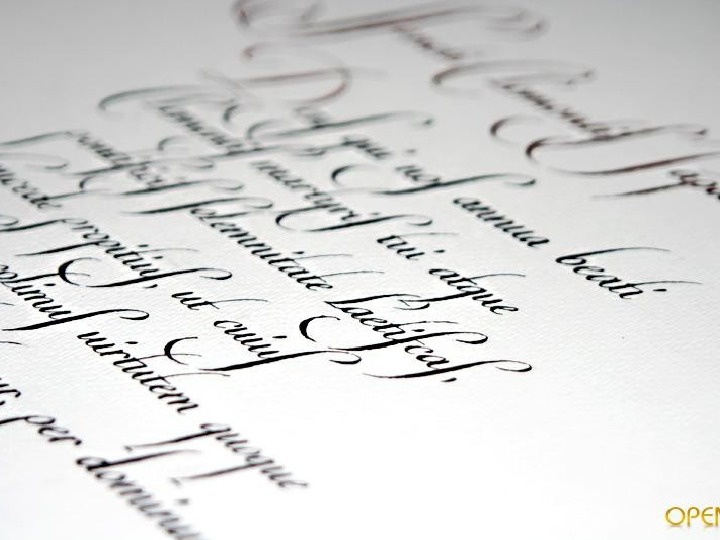 Clementis
Deus qui nos annua beati
Clementis martyris tui atque
pontificis solemnitate laetificas,
ncede propitius, ut cuius
olimus uirtutem quoque
per dominu
OPEN